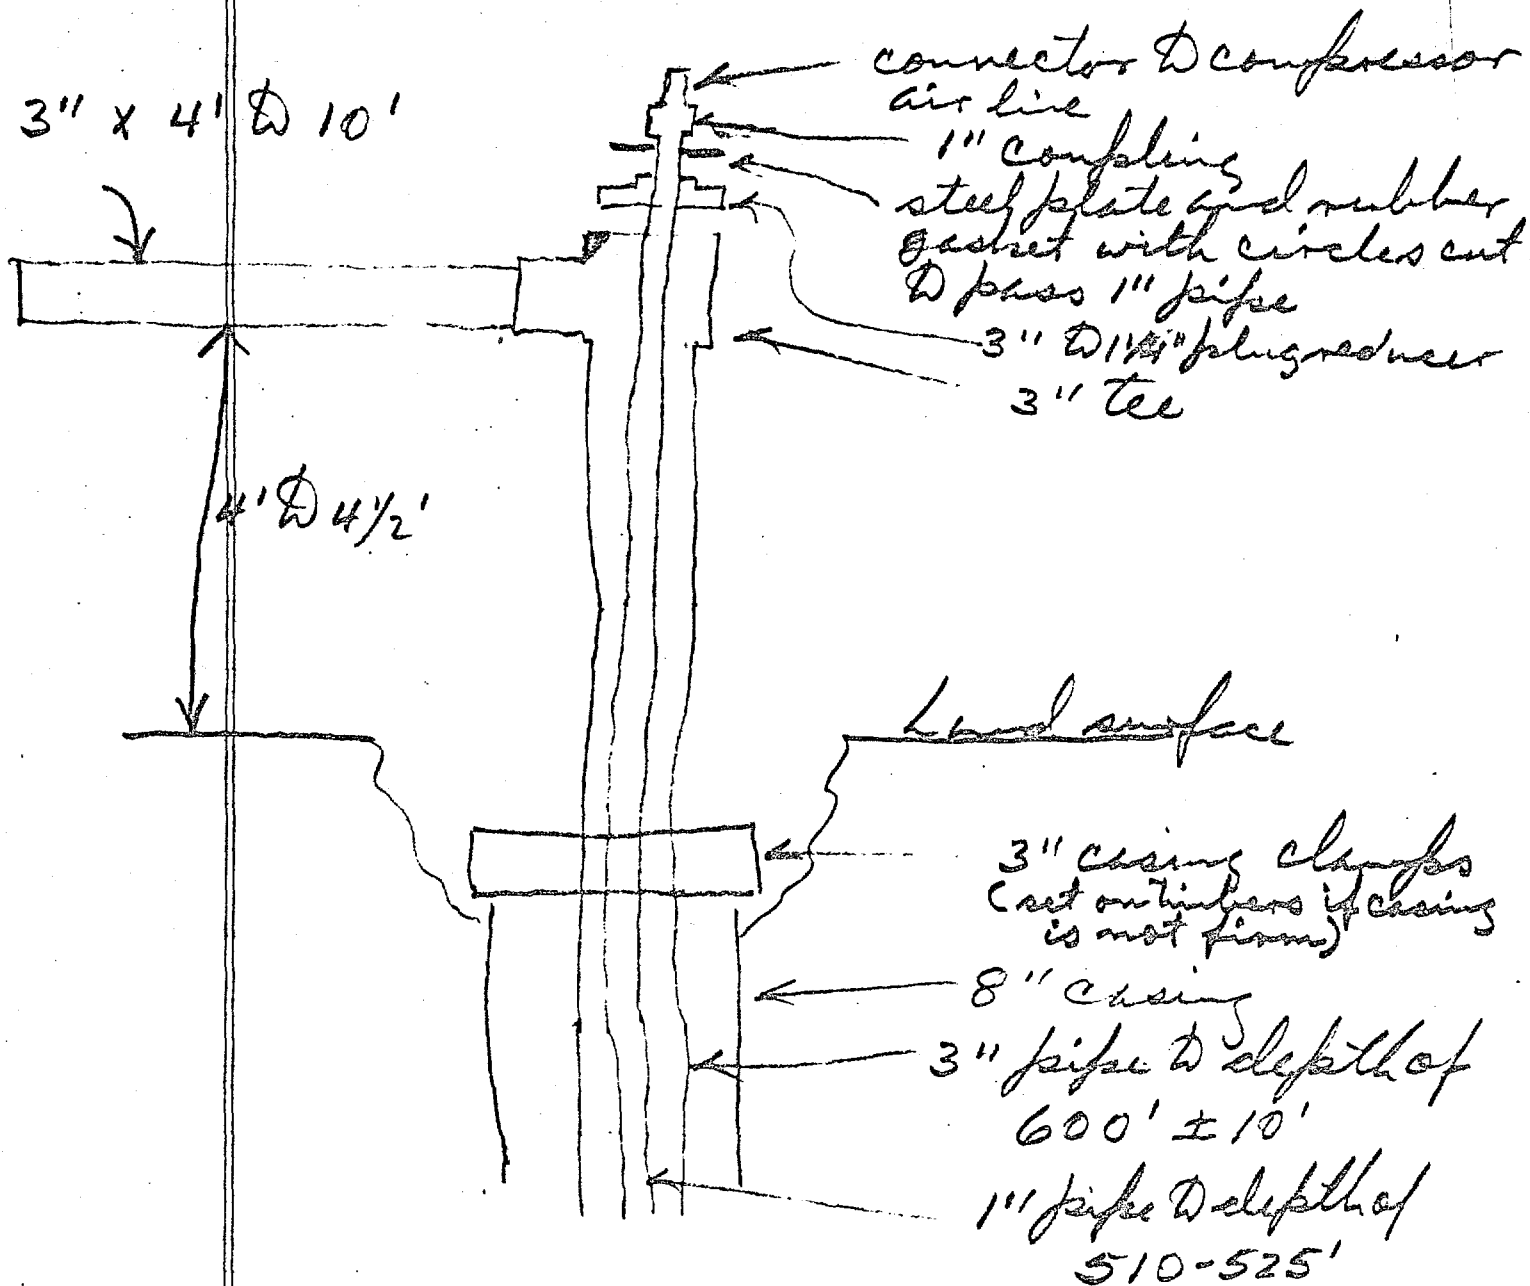 3" x 4' to 10'
connector to compressor
air line
1" coupling
steel plate and rubber
gasket with circles cut
to pass 1" pipe
3" to 1¼" plug reducer
3" tee
4' to 4½'
Land surface
3" casing clamps
(set on timbers if casing
is not firm)
8" casing
3" pipe to depth of
600' ± 10'
1" pipe to depth of
510-525'